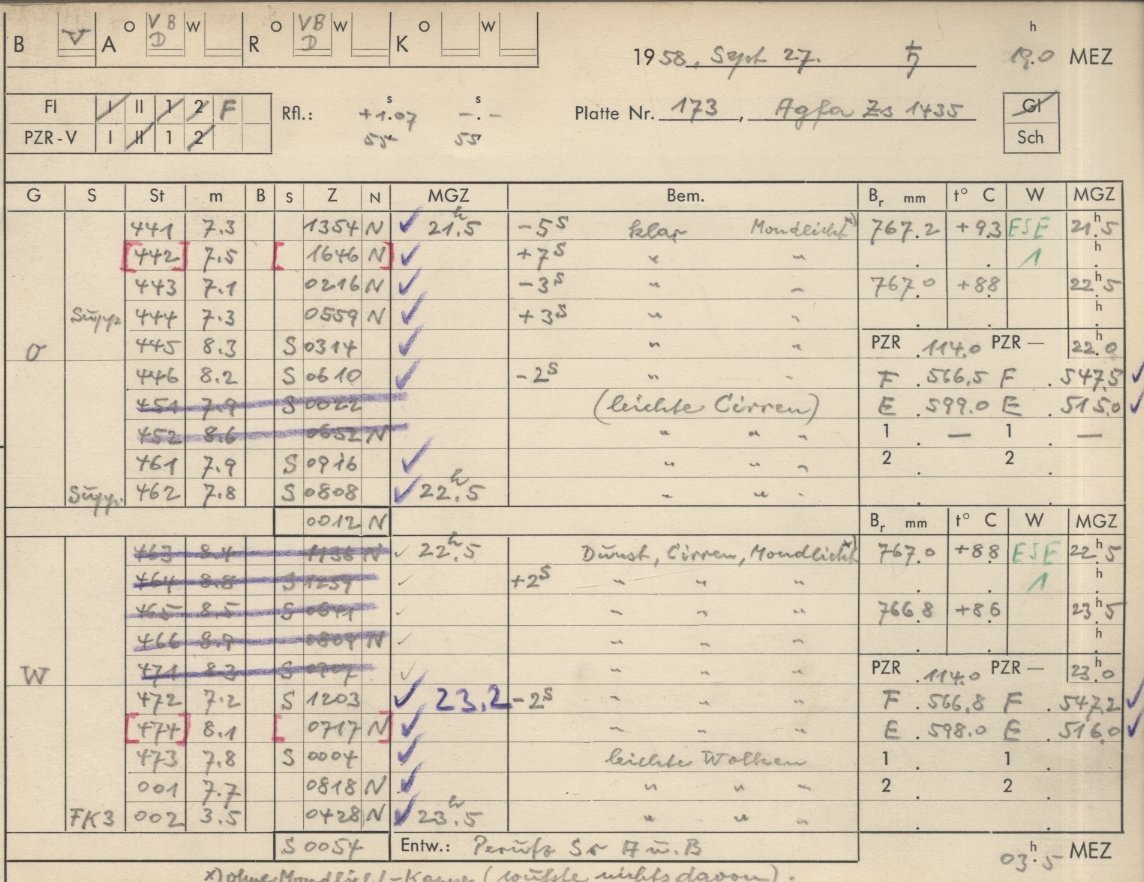 B V A O VB D W R O VB D W K O W 1958, Sept 27. ♄ 19.0 h MEZ
FI I II 1 2 F Rfl.: +1.07 s -.- s Platte Nr. 173, Agfa Zs 1435 Gl
PZR-V I II 1 2 55 Sch
G S St m B S Z N MGZ Bem. Br mm t° C W MGZ
441 7.3 1354 N ✓ 21h.5 -5s klar Mondlicht x) 767.2 +9.3 ESE 21h.5
[442] 7.5 [1646 N] ✓ +7s " " 1 h
443 7.1 0216 N ✓ -3s " " 767.0 +8.8 22h.5
444 7.3 0559 N ✓ +3s " " h
O 445 8.3 S 0314 ✓ " " PZR 114.0 PZR — 22.0 h
446 8.2 S 0610 ✓ -2s " " F 566.5 F 547.5 ✓
451 7.9 S 0022 (leichte Cirren) E 599.0 E 515.0 ✓
452 8.6 0652 N " " " 1 — 1 —
461 7.9 S 0916 ✓ " " " 2 2
462 7.8 S 0808 ✓ 22h.5 " " "
0012 N Br mm t° C W MGZ
463 8.4 1136 N ✓ 22h.5 Dunst, Cirren, Mondlicht x) 767.0 +8.8 ESE 22h.5
464 8.8 S 1259 ✓ +2s " " " 1 h
465 8.5 S 0841 ✓ " " " 766.8 +8.6 23h.5
466 8.9 0809 N ✓ " " " h
W 471 8.3 S ✓ " " " PZR 114.0 PZR — 23.0 h
472 7.2 S 1203 ✓ 23.2 -2s " " " F 566.8 F 547.2 ✓
[474] 8.1 [0717 N] ✓ " " " E 598.0 E 516.0 ✓
473 7.8 S 0004 ✓ leichte Wolken 1 1
001 7.7 0818 N ✓ " " " 2 2
FK3 002 3.5 0428 N ✓ 23h.5 " " "
S 0054 Entw.: Perutz Sr A u. B 03.5 h MEZ
x) ohne Mondlicht-Kappe (wußte nichts davon).